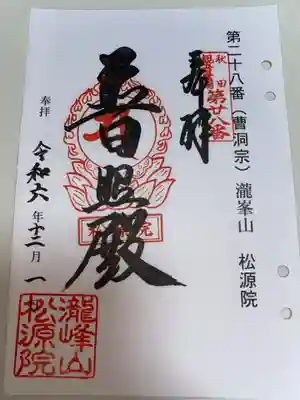 第二十八番(曹洞宗) 瀧峯山 松源院
奉拝
秋田
第廿八番
普照殿
奉拝
令和六年十二月一日
瀧峰山
松源院